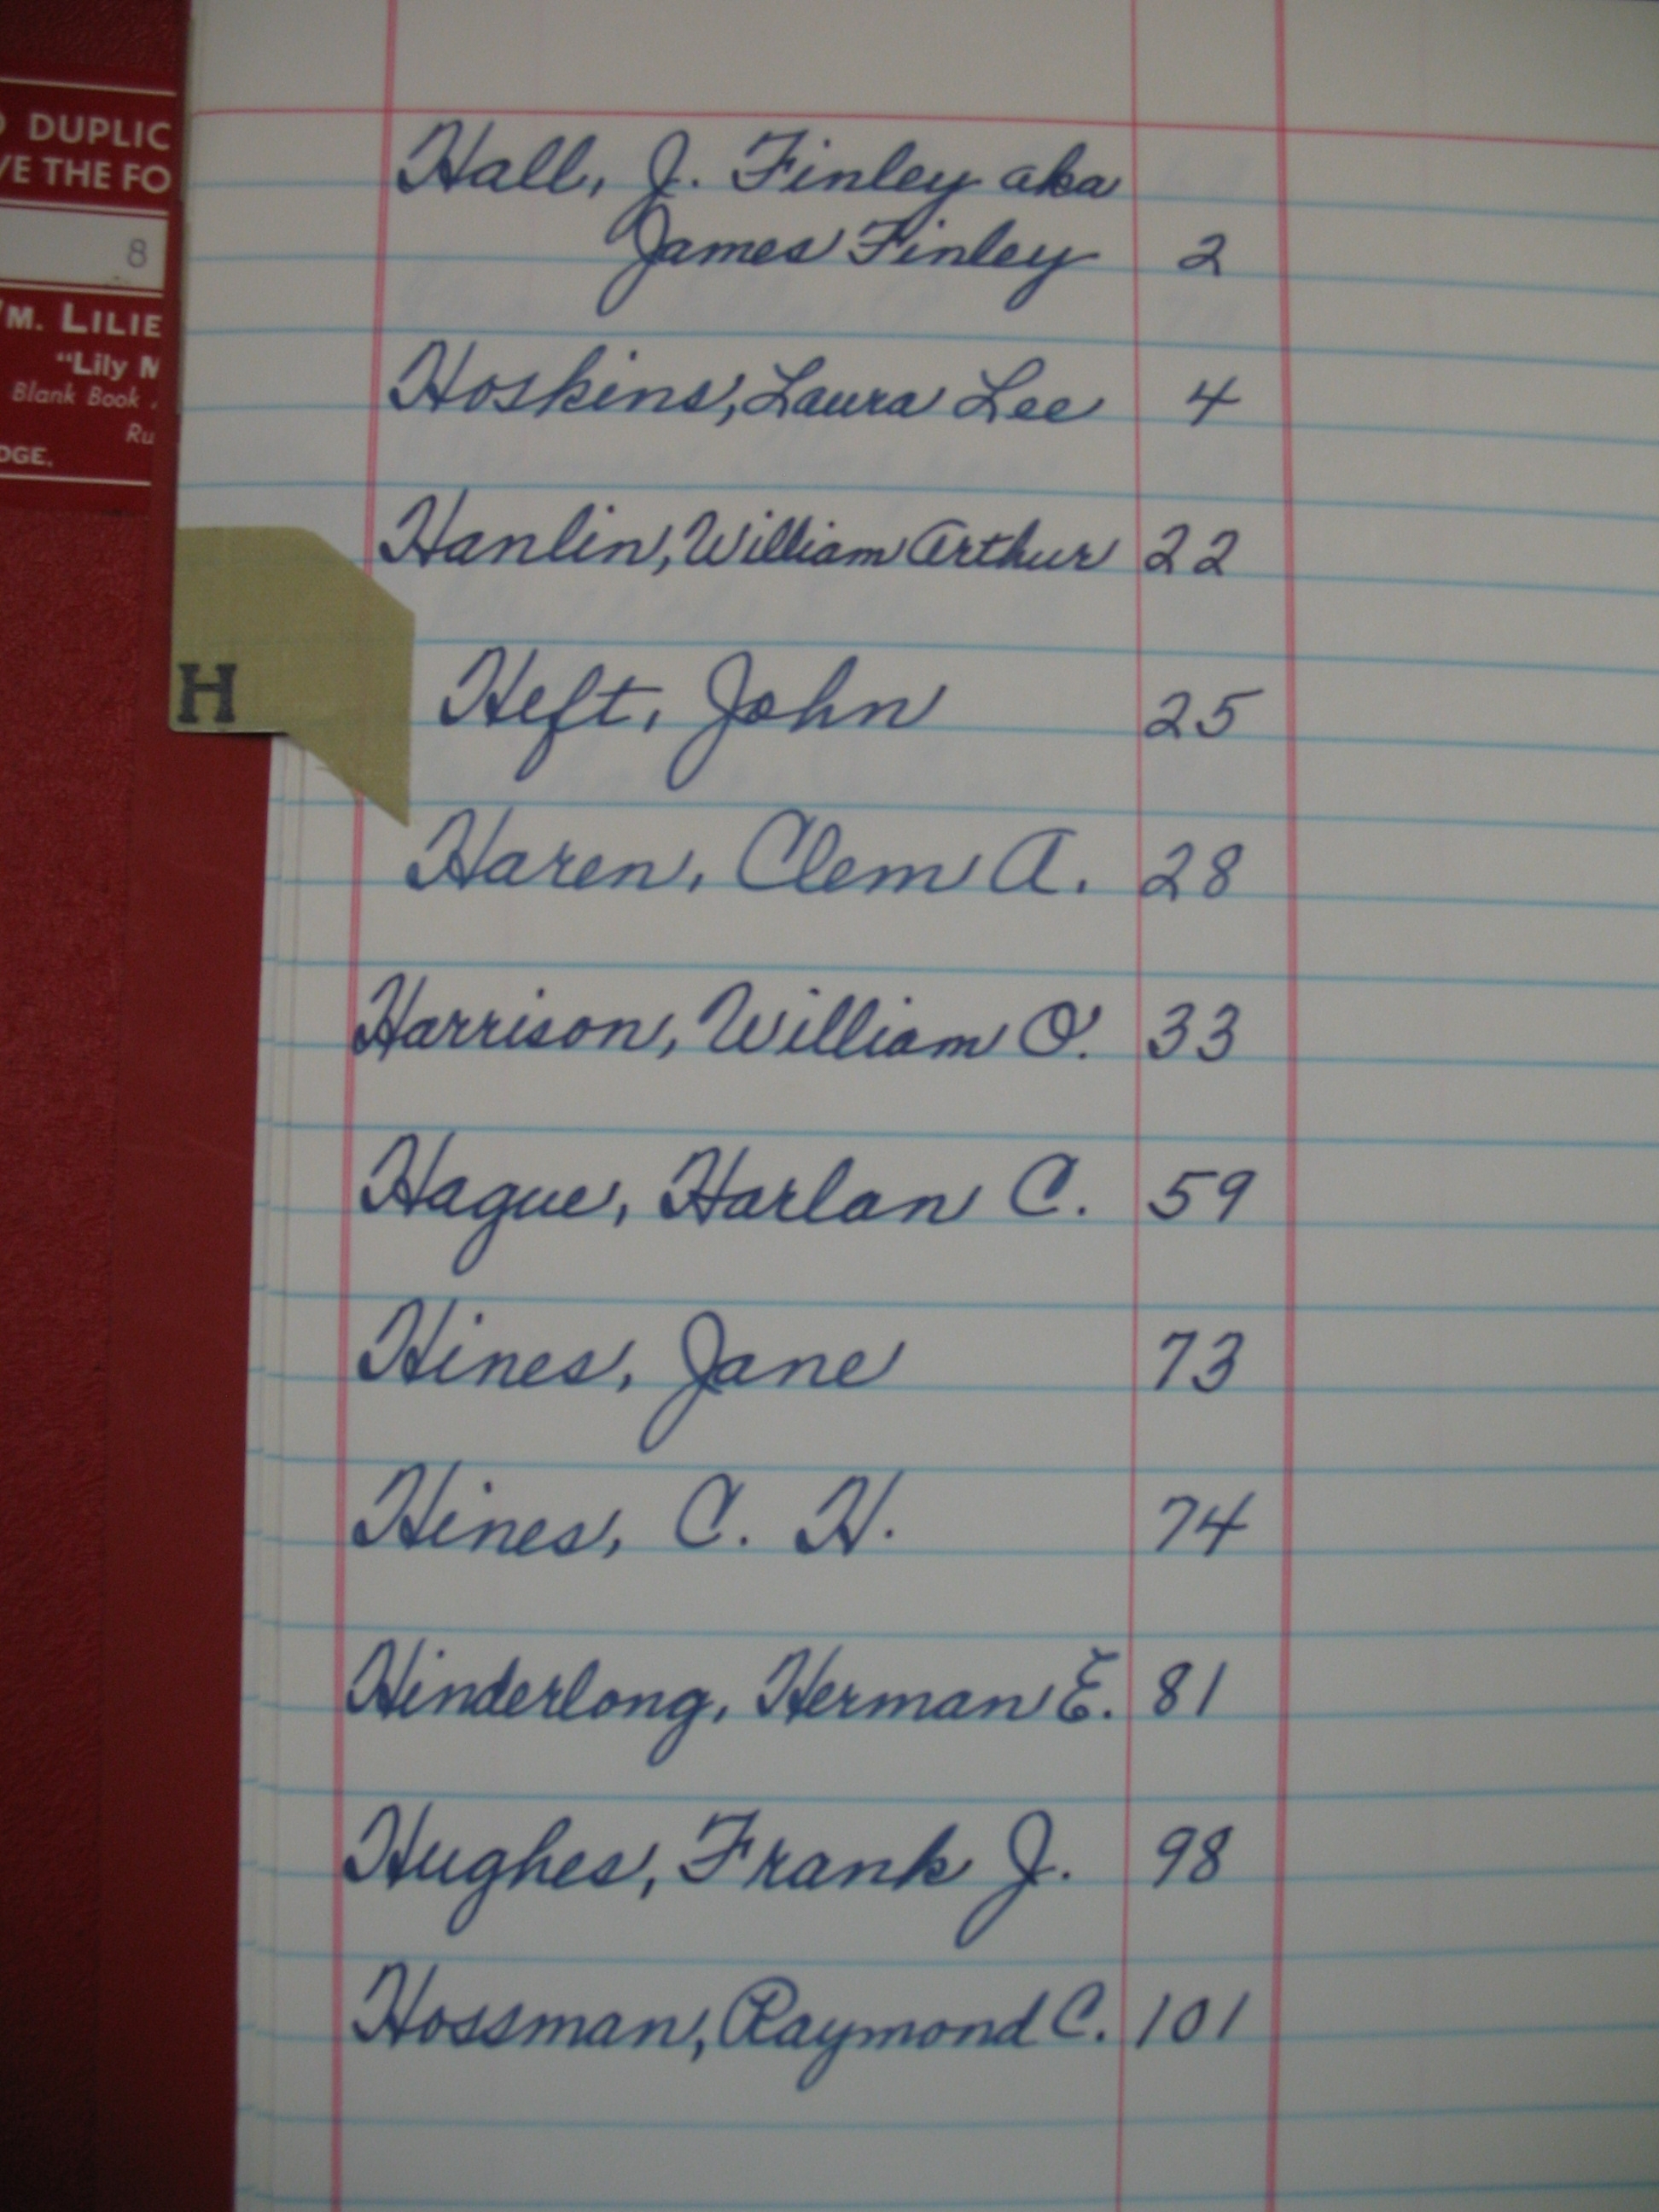 DUPLIC
VE THE FO
8
WM. LILIE
"Lily M
Blank Book
Ru
DGE.
H
Hall, J. Finley aka
James Finley 2
Hoskins, Laura Lee 4
Hanlin, William Arthur 22
Heft, John 25
Haren, Clem A. 28
Harrison, William O. 33
Hague, Harlan C. 59
Hines, Jane 73
Hines, C. H. 74
Hinderlong, Herman E. 81
Hughes, Frank J. 98
Hossman, Raymond C. 101